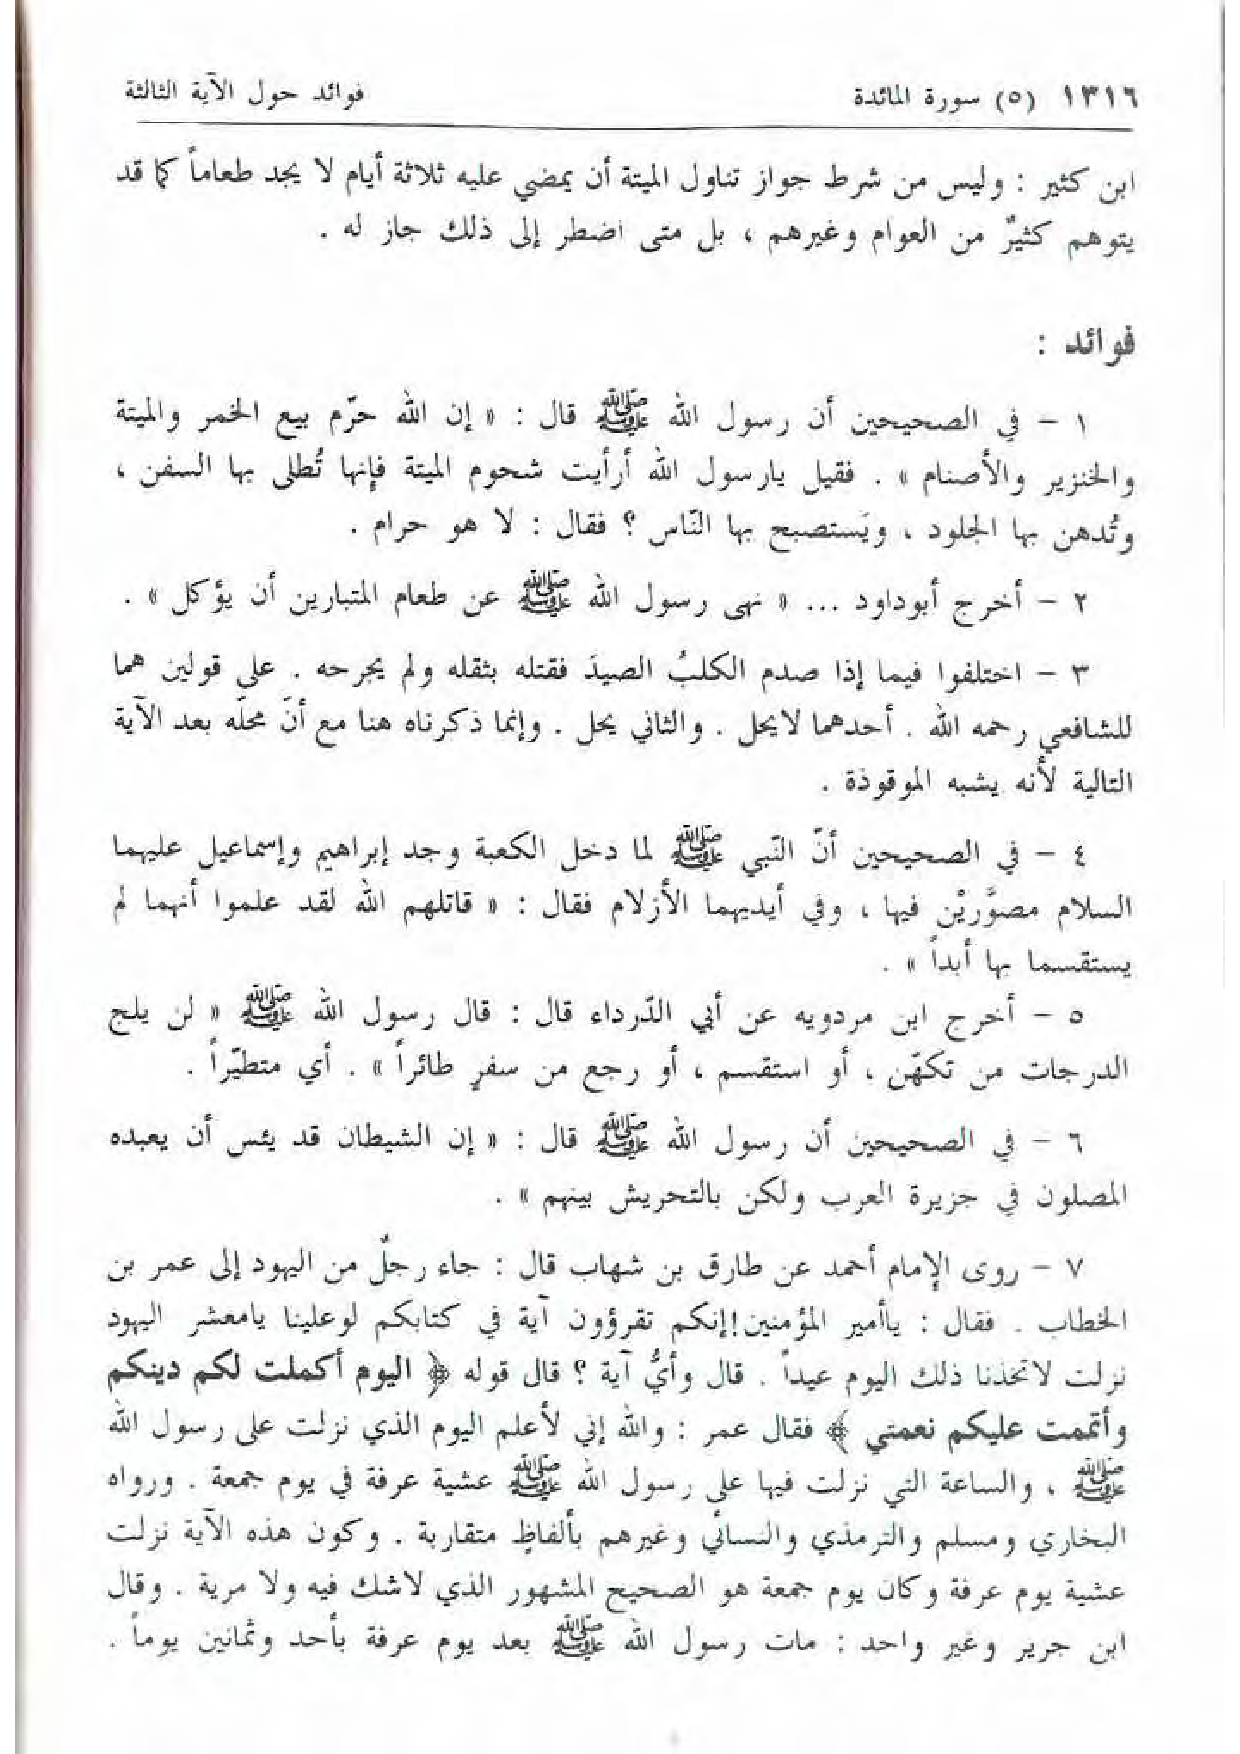 ١٣١٦ (٥) سورة المائدة فوائد حول الآية الثالثة
ابن كثير : وليس من شرط جواز تناول الميتة أن يمضي عليه ثلاثة أيام لا يجد طعاماً كما قد
يتوهم كثيرٌ من العوام وغيرهم ، بل متى اضطر إلى ذلك جاز له .
فوائد :
١ – في الصحيحين أن رسول الله ﷺ قال : « إن الله حرّم بيع الخمر والميتة
والخنزير والأصنام » . فقيل يارسول الله أرأيت شحوم الميتة فإنها تُطلى بها السفن ،
وتُدهن بها الجلود ، ويَستصبح بها النّاس ؟ فقال : لا هو حرام .
٢ – أخرج أبوداود ... « نهى رسول الله ﷺ عن طعام المتبارين أن يؤكل » .
٣ – اختلفوا فيما إذا صدم الكلبُ الصيدَ فقتله بثقله ولم يجرحه . على قولين هما
للشافعي رحمه الله . أحدهما لايحل . والثاني يحل . وإنما ذكرناه هنا مع أنّ محلّه بعد الآية
التالية لأنه يشبه الموقوذة .
٤ – في الصحيحين أنّ النّبي ﷺ لما دخل الكعبة وجد إبراهيم وإسماعيل عليهما
السلام مصوَّريْن فيها ، وفي أيديهما الأزلام فقال : « قاتلهم الله لقد علموا أنهما لم
يستقسما بها أبداً » .
٥ – أخرج ابن مردويه عن أبي الدّرداء قال : قال رسول الله ﷺ « لن يلج
الدرجات من تكهّن ، أو استقسم ، أو رجع من سفرٍ طائراً » . أي متطيّراً .
٦ – في الصحيحين أن رسول الله ﷺ قال : « إن الشيطان قد يئس أن يعبده
المصلون في جزيرة العرب ولكن بالتحريش بينهم » .
٧ – روى الإمام أحمد عن طارق بن شهاب قال : جاء رجلٌ من اليهود إلى عمر بن
الخطاب . فقال : ياأمير المؤمنين!إنكم تقرؤون آية في كتابكم لوعلينا يامعشر اليهود
نزلت لاتخذنا ذلك اليوم عيداً . قال وأيُّ آية ؟ قال قوله ﴿ اليوم أكملت لكم دينكم
وأتممت عليكم نعمتي ﴾ فقال عمر : والله إني لأعلم اليوم الذي نزلت على رسول الله
ﷺ ، والساعة التي نزلت فيها على رسول الله ﷺ عشية عرفة في يوم جمعة . ورواه
البخاري ومسلم والترمذي والنسائي وغيرهم بألفاظٍ متقاربة . وكون هذه الآية نزلت
عشية يوم عرفة وكان يوم جمعة هو الصحيح المشهور الذي لاشك فيه ولا مرية . وقال
ابن جرير وغير واحد : مات رسول الله ﷺ بعد يوم عرفة بأحد وثمانين يوماً .